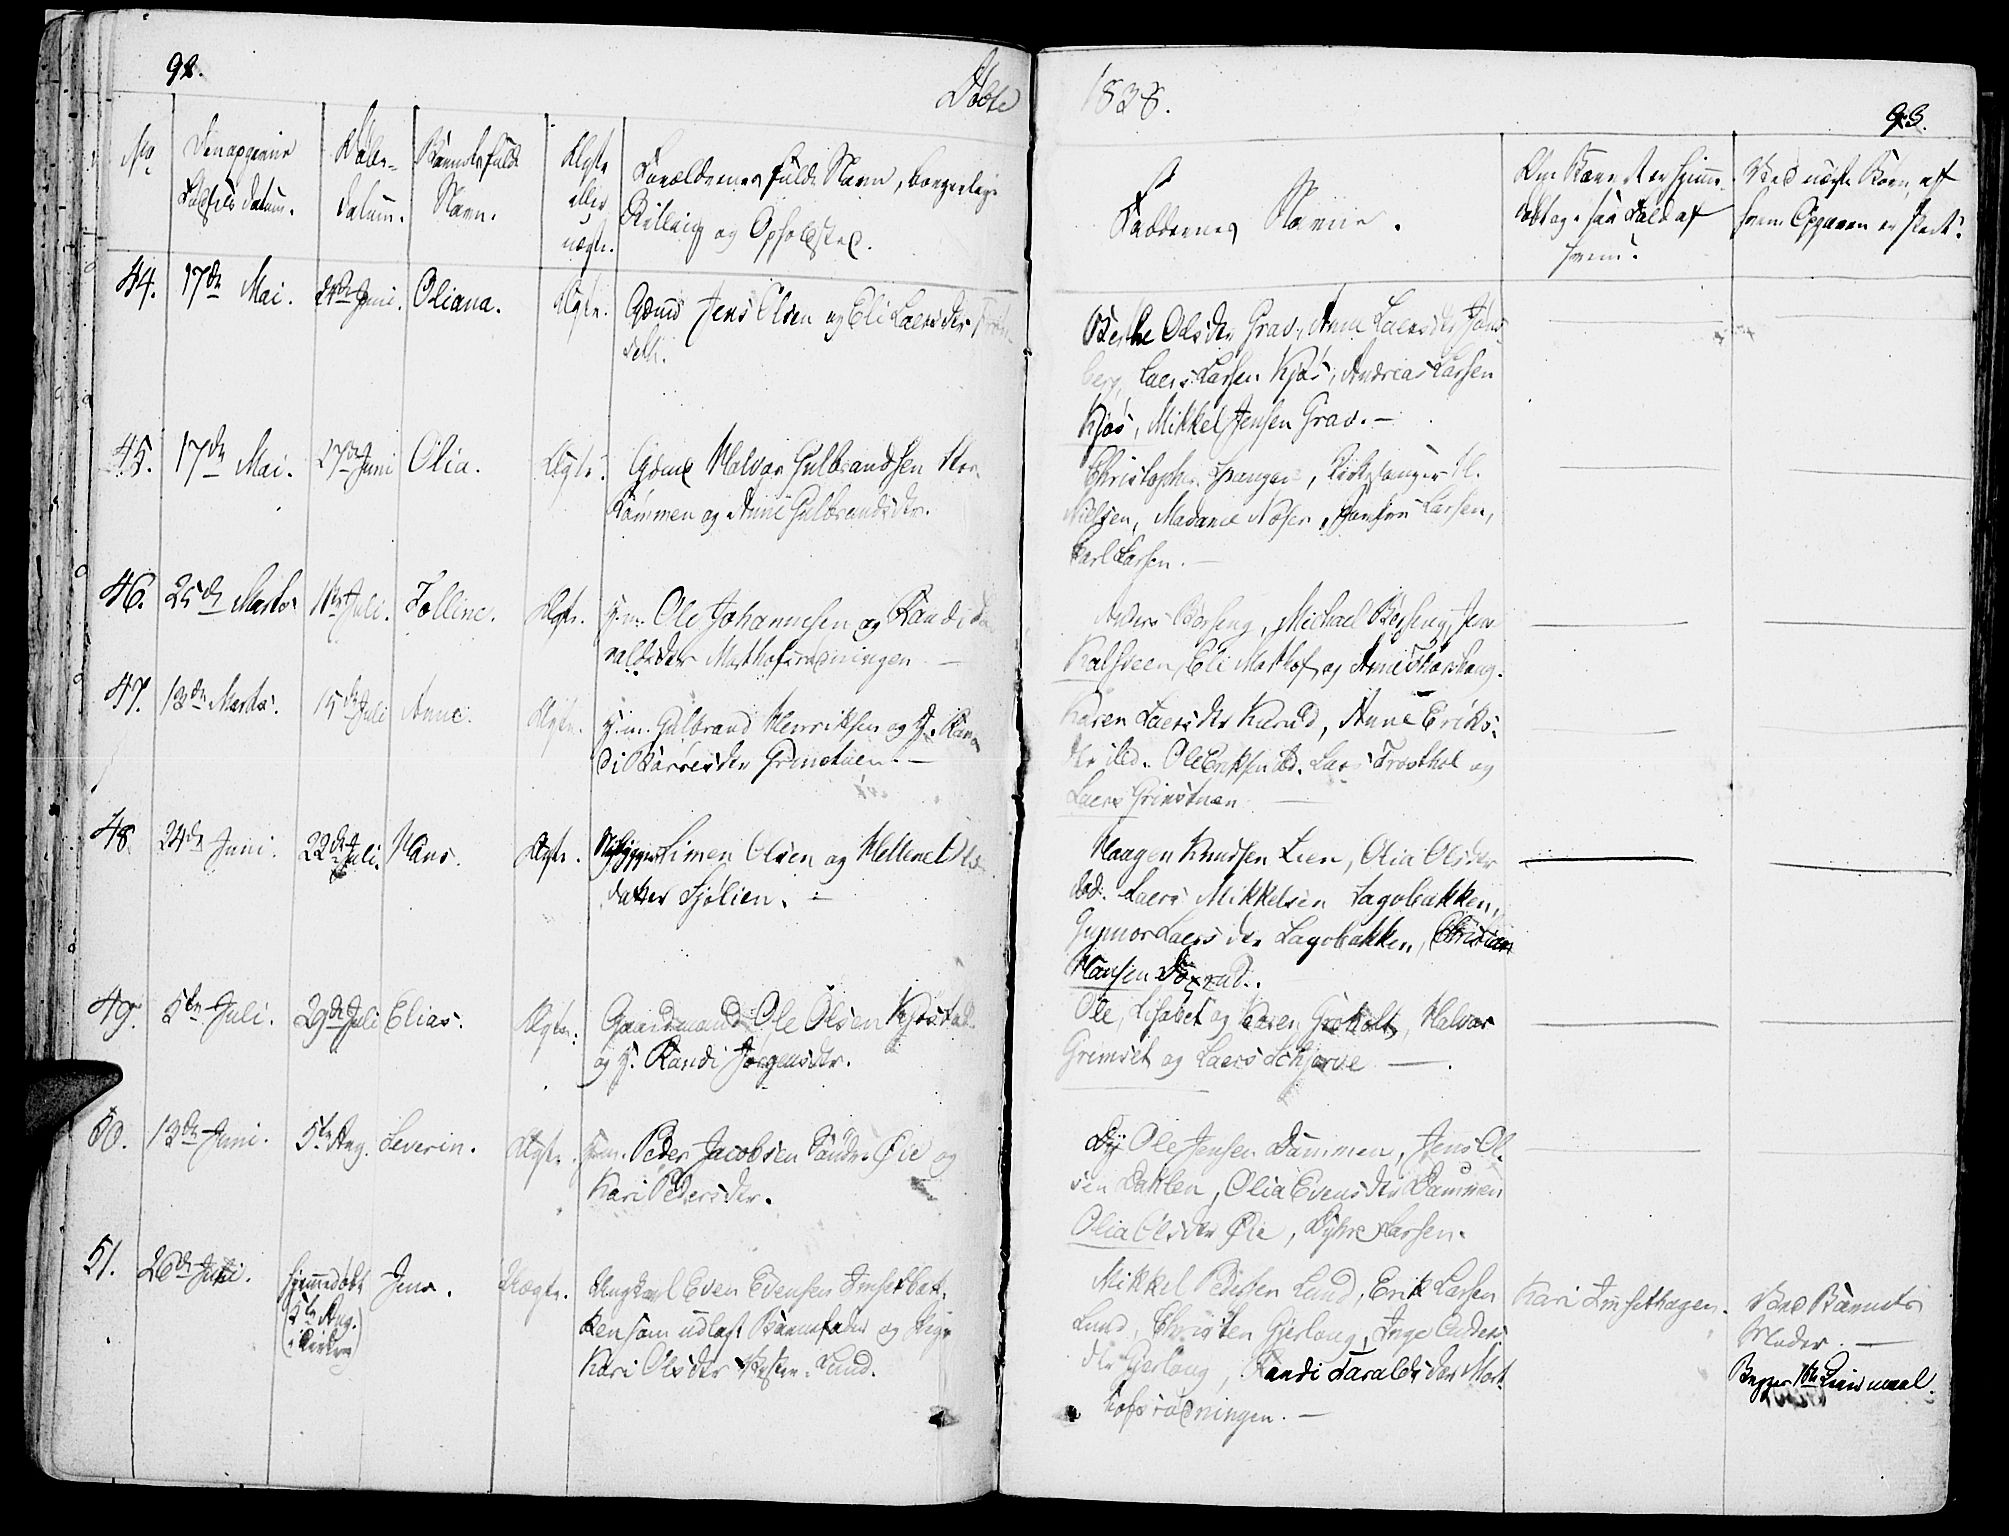 92.
Døbte
1838.
93.
No.
Den opgivne
Fødsels datum.
Døbe-
datum.
Barnets fulde
Navn.
Ægte
eller
uægte.
Forældrenes fulde Navn, borgerlige
Stilling og Opholdsted.
Faddernes Navne.
Om Barnet er hjemme-
døbt og i saa Fald af
hvem?
Ved uægte Børn, af
hvem Opgaven er skeet?
44.
17de Mai.
Juni.
Oliana.
Ægte.
Gmd Jens Olsen og Eli Laersdtr
seth.
Berthe Olsdtr Grav, Anne Laersdtr Jøns-
berg, Laers Larsen Kjøs, Andreas Larsen
Kjøs, Mikkel Jensen Grav. —
45.
17de Mai.
27de Juni
Olia.
Ægte.
Gdmd Halvor Gulbrandsen
og Anne Gulbrandsdtr.
Christopher Spanger, Kirkesanger H.
Nielsen, Madame Jomfru Larsen,
Karl Larsen. —
46.
25de Marts
1ste Juli.
Tolline.
Ægte.
H.m. Ole Johannesen og Randi Ta-
raldsdtr Morthofsrødningen. —
Anders Børseng, Michael Børseng, Jens
Kalsveen, Eli Mothof, og Anne
47.
13de Marts.
15de Juli
Anne.
Ægte.
H.m. Gulbrand Henriksen og H. Ran-
di Baardsdtr Grinstuen. —
Karen Laersdtr Kurud, Anne Eriks-
dtr ibd. Ole Eriksen ibd. Laers Trosthol og
Laers Grinstuen —
48.
24de Juni.
22de Juli.
Hans.
Ægte.
Nybygger Simen Olsen og Hellene Ols-
datter Sjølien. —
Haagen Knudsen Lien, Olia Olsdtr
ibd. Laers Mikkelsen Lagobakken,
Gunnor Laersdtr Lagobakken, Christian
Hansen
49.
5te Juli.
29de Juli
Elias.
Ægte.
Gaardmand Ole Olsen
og H. Randi Jørgensdtr.
Ole, Lisabet og Karen Groholt, Halvor
Grimset og Laers Schjerve —
50.
13de Juni.
5te Aug.
Severin.
Ægte.
H.m. Peder Jacobsen Søndre Øie og
Kari Pedersdtr.
Ole Jensen Dammen, Jens Ol-
sen Dahlen, Olia Evensdtr Dammen
Olia Olsdtr Øie, Dyhre Larsen.
51.
26de Juni.
hjemmedøbt
5te Aug.
(i Kirken)
Jens.
Uægte.
Ungkarl Even Evensen Imsetbak-
ken som udlagt Barnefader og Pige
Kari Olsdtr Lund.
Mikkel Pedersen Lund, Erik Larsen
Lund, Christen Gjerlaug, Inge Anders-
dtr Gjerlaug, Randi Taraldsdtr Mort-
hofsrødningen. —
Kari Imsethagen.
Ved Barnets
Moder. —
Begges 1ste Leiermaal.